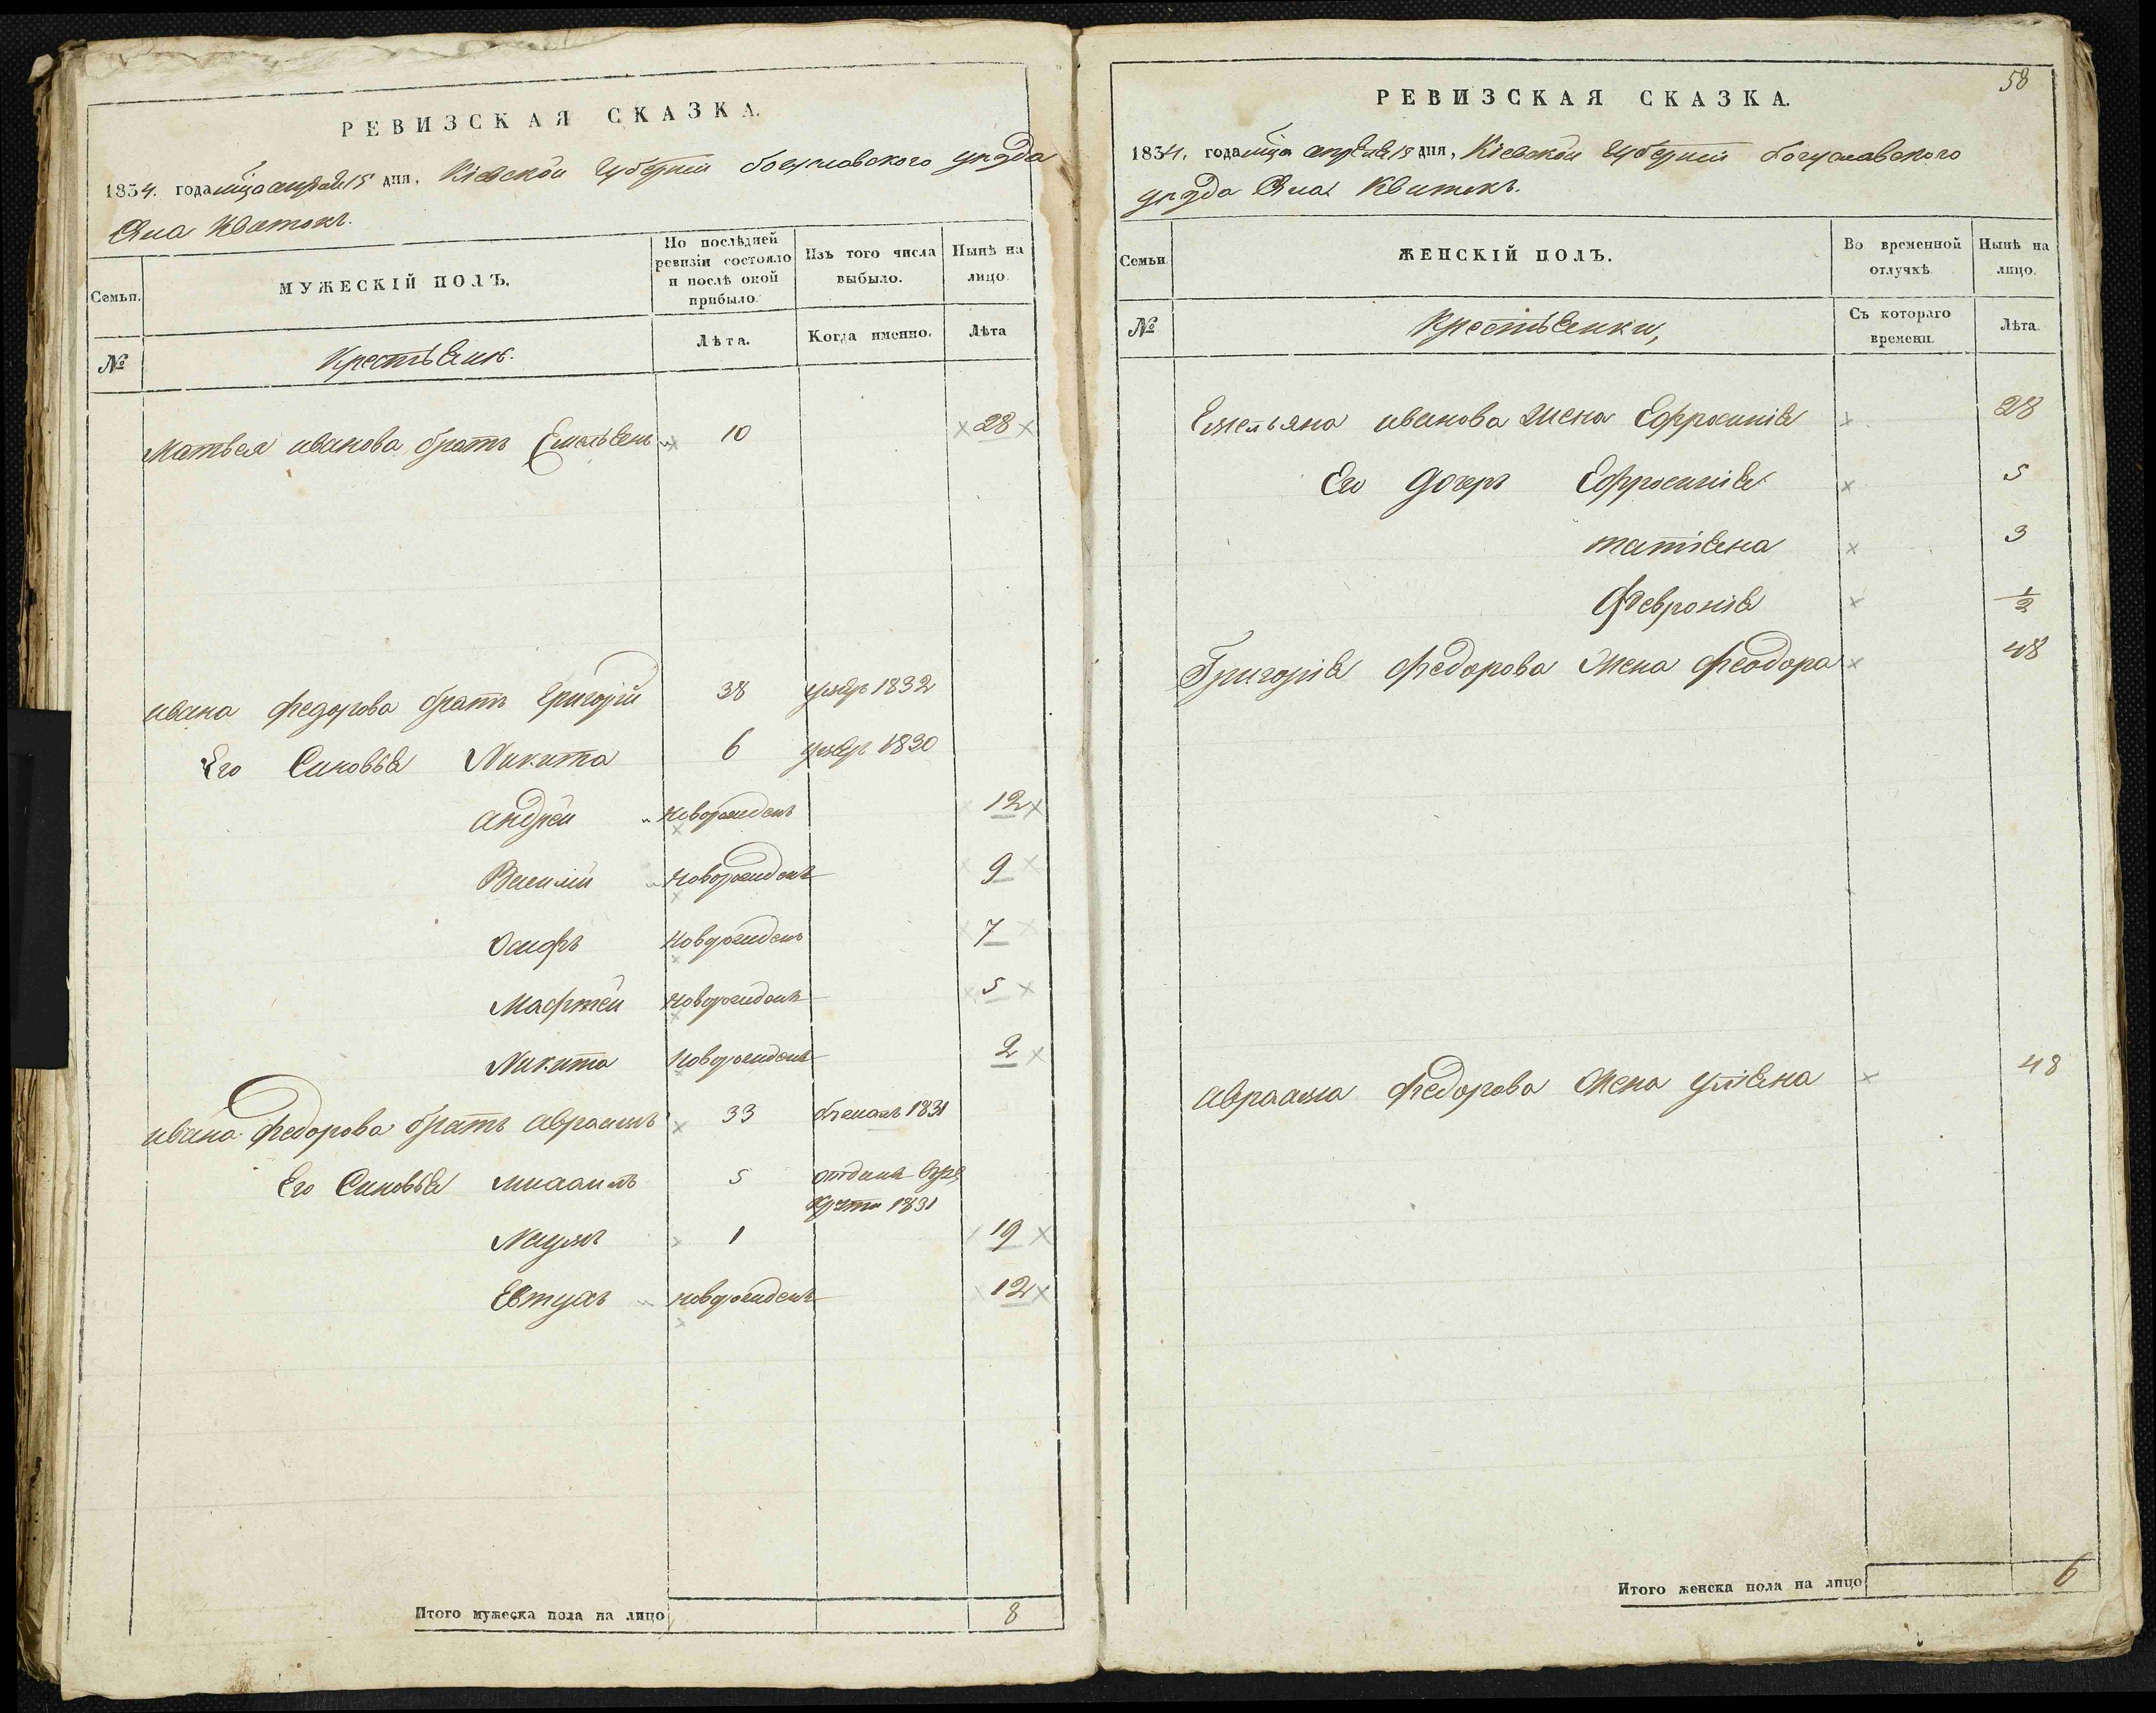 РЕВИЗСКАЯ СКАЗКА.
1834. года мца апреля 15 дня, Кіевской Губерніи богуславского уезда
Села Квиток.
Семьи.
МУЖЕСКІЙ ПОЛЪ.
По послѣдней ревизіи состояло и послѣ оной прибыло.
Изъ того числа выбыло.
Нынѣ на лицо.
№
Крестьяне.
Лѣта.
Когда именно.
Лѣта
Матвея иванова братъ Емельянъ 10 28
ивана федорова братъ Григорій 38 умеръ 1832
Его Синовья Никита 6 умеръ 1830
андрей новорожденъ 12
Василій новорожденъ 9
Осифъ новорожденъ 7
Мафтей новорожденъ 5
Никита новорожденъ 2
ивана федорова братъ авраамъ 33 бежалъ 1831
Его Синовья михаилъ 5 отданъ врекруты 1831
Наумъ 1 19
Евтухъ новорожденъ 12
Итого мужеска пола на лицо 8
58
РЕВИЗСКАЯ СКАЗКА.
1834. года мца апреля 15 дня, Кіевской Губерніи богуславского
уезда Села Квиток.
Семьи.
ЖЕНСКІЙ ПОЛЪ.
Во временной отлучкѣ.
Нынѣ на лицо.
№
Крестьянки,
Съ котораго времени.
Лѣта.
Емельяна иванова жена Ефросинія 28
Его дочери Ефросинія 5
татіяна 3
Февронія ½
Григорія федорова жена феодора 48
авраама федорова жена уліяна 48
Итого женска пола на лицо 6